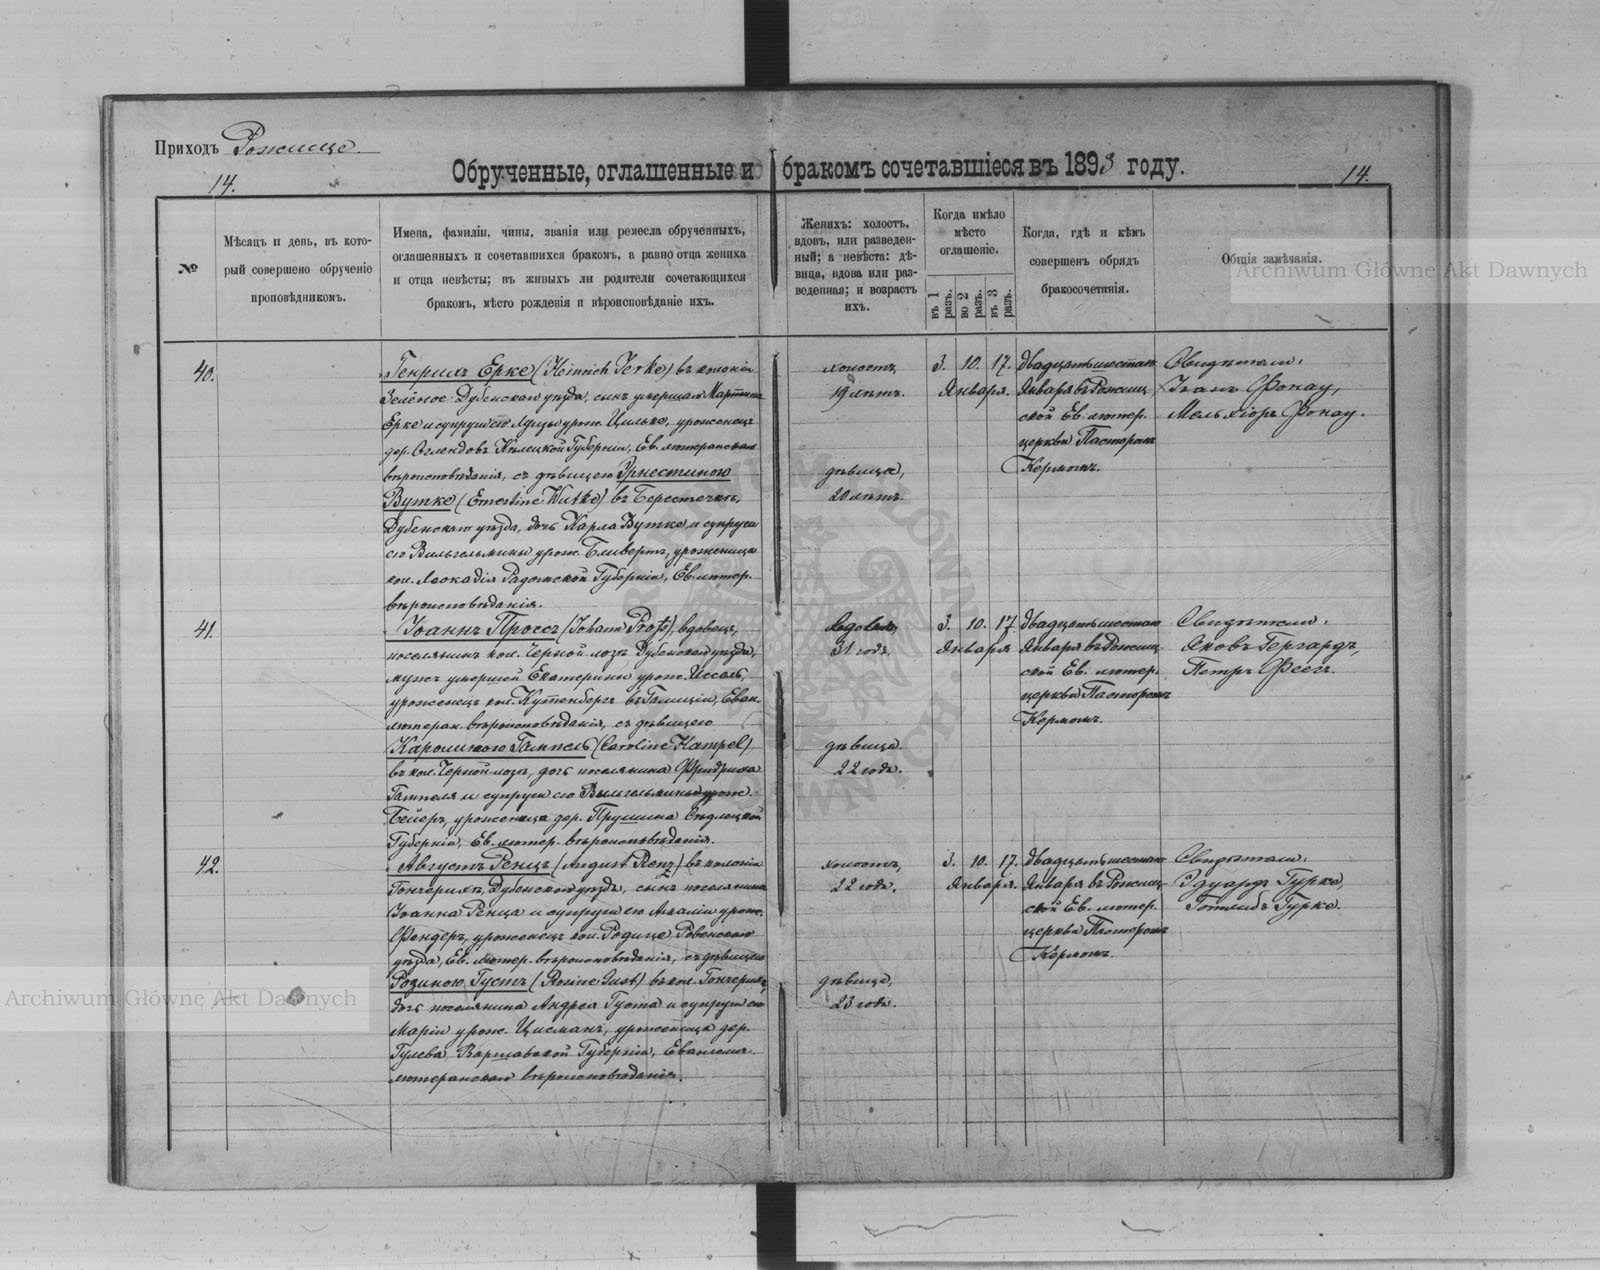 Приходъ Рожище.
14.
Обрученные, оглашенные и бракомъ сочетавшіеся въ 1893 году.
14.
№
Мѣсяцъ и день, въ кото-
рый совершено обрученіе
проповѣдникомъ.
Имена, фамиліи, чины, званія или ремесла обрученныхъ,
оглашенныхъ и сочетавшихся бракомъ, а равно отца жениха
и отца невѣсты; въ живыхъ ли родители сочетающихся
бракомъ, мѣсто рожденія и вѣроисповѣданіе ихъ.
Женихъ: холостъ,
вдовъ, или разведен-
ный; а невѣста: дѣ-
вица, вдова или раз-
веденная; и возрастъ
ихъ.
Когда имѣло
мѣсто
оглашеніе.
въ 1 разъ.
во 2 разъ.
въ 3 разъ.
Когда, гдѣ и кѣмъ
совершенъ обрядъ
бракосочетанія.
Общія замѣчанія.
Archiwum Główne Akt Dawnych
40.
Генрихъ Ерке (Heinrich Jerke) въ колоніи
Зелёное Дубенскаго уѣзда, сынъ умершаго Мартина
Ерке и супруги его урож. Цильке, уроженецъ
дер. Кѣлецкой Губерніи, Ев. лютеранскаго
вѣроисповѣданія, съ дѣвицею Эрнестиною
Вутке (Ernestine Wutke) въ Берестечкѣ,
Дубенскаго уѣзда, дочь Карла Вутке и супруги
его Вильгельмины урож. Бливертъ, уроженица
кол. Леокадія Радомской Губерніи, Ев. лютер.
вѣроисповѣданія.
холостъ,
19 лѣтъ.
дѣвица,
20 лѣтъ.
3. 10. 17.
Января.
Двадцать шестаго
Января въ Рожищ-
ской Ев. лютер.
церкви Пасторомъ
Кермомъ.
Свидѣтели:
Іоганъ Фонау,
Мельхіоръ Фонау.
41.
Іоаннъ Просъ (Johann Proß), вдовецъ,
поселянинъ кол. Черной-лозъ Дубенскаго уѣзда,
мужъ умершей Екатерины урож. Иссель,
уроженецъ кол. Куттенбергъ въ Галиціи, Еван.
лютеран. вѣроисповѣданія, съ дѣвицею
Каролиною Гампель (Caroline Hampel)
въ кол. Черной-лозъ, дочь поселянина Фридриха
Гампеля и супруги его Вильгельмины урож.
Бейеръ, уроженица дер. Прушина Сѣдлецкой
Губерніи, Ев. лютер. вѣроисповѣданія.
вдовецъ,
31 годъ.
дѣвица.
22 года.
3. 10. 17
Января
Двадцать шестаго
Января въ Рожищ-
ской Ев. лютер.
церкви Пасторомъ
Кермомъ.
Свидѣтели:
Яковъ Гергардъ,
Петръ Феегъ.
42.
Августъ Ренцъ (August Renz) въ колоніи
Гончерихѣ, Дубенскаго уѣзда, сынъ поселянина
Іоанна Ренца и супруги его Амаліи урож.
Фендеръ, уроженецъ кол. Ровенскаго
уѣзда, Ев. лютер. вѣроисповѣданія, съ дѣвицею
Розиною Густъ (Rosine Gust) въ кол. Гончерихѣ,
дочь поселянина Андрея Густа и супруги его
Маріи урож. Цисманъ, уроженица дер.
Гулева, Варшавской Губерніи, Евангел.
лютеранскаго вѣроисповѣданія.
холостъ,
22 года.
дѣвица,
23 года.
3. 10. 17.
Января.
Двадцать шестаго
Января въ Рожищ-
ской Ев. лютер.
церкви Пасторомъ
Кермомъ.
Свидѣтели:
Эдуардъ Гурке,
Готлибъ Гурке.
Archiwum Główne Akt Dawnych